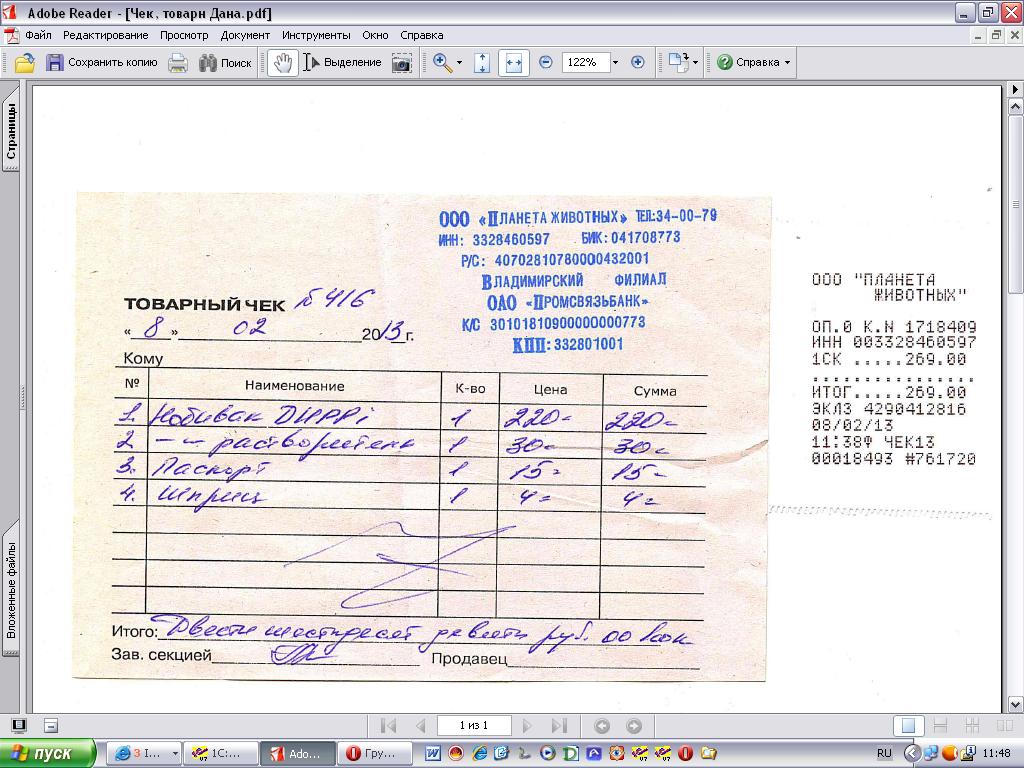 Adobe Reader - [Чек, товарн Дана.pdf]
Файл Редактирование Просмотр Документ Инструменты Окно Справка
Сохранить копию Поиск Выделение 122% Справка
Страницы
ООО «ПЛАНЕТА ЖИВОТНЫХ» ТЕЛ:34-00-79
ИНН: 3328460597 БИК: 041708773
Р/С: 40702810780000432001
ВЛАДИМИРСКИЙ ФИЛИАЛ
ОАО «ПРОМСВЯЗЬБАНК»
К/С 30101810900000000773
КПП: 332801001
ТОВАРНЫЙ ЧЕК № 416
«8» 02 2013 г.
Кому
№ Наименование К-во Цена Сумма
1. Нобивак DHPPi 1 220= 220=
2 –"– растворитель 1 30= 30=
3. Паспорт 1 15= 15=
4. Шприц 1 4= 4=
Итого: Двести шестьдесят девять руб. 00 коп
Зав. секцией Продавец
ООО "ПЛАНЕТА
ЖИВОТНЫХ"
ОП.0 К.N 1718409
ИНН 003328460597
1СК .....269.00
................
ИТОГ.....269.00
ЭКЛЗ 4290412816
08/02/13
11:38Ф ЧЕК13
00018493 #761720
Вложенные файлы
1 из 1
пуск 3 I... 1С:... Ado... Гру... RU 11:48